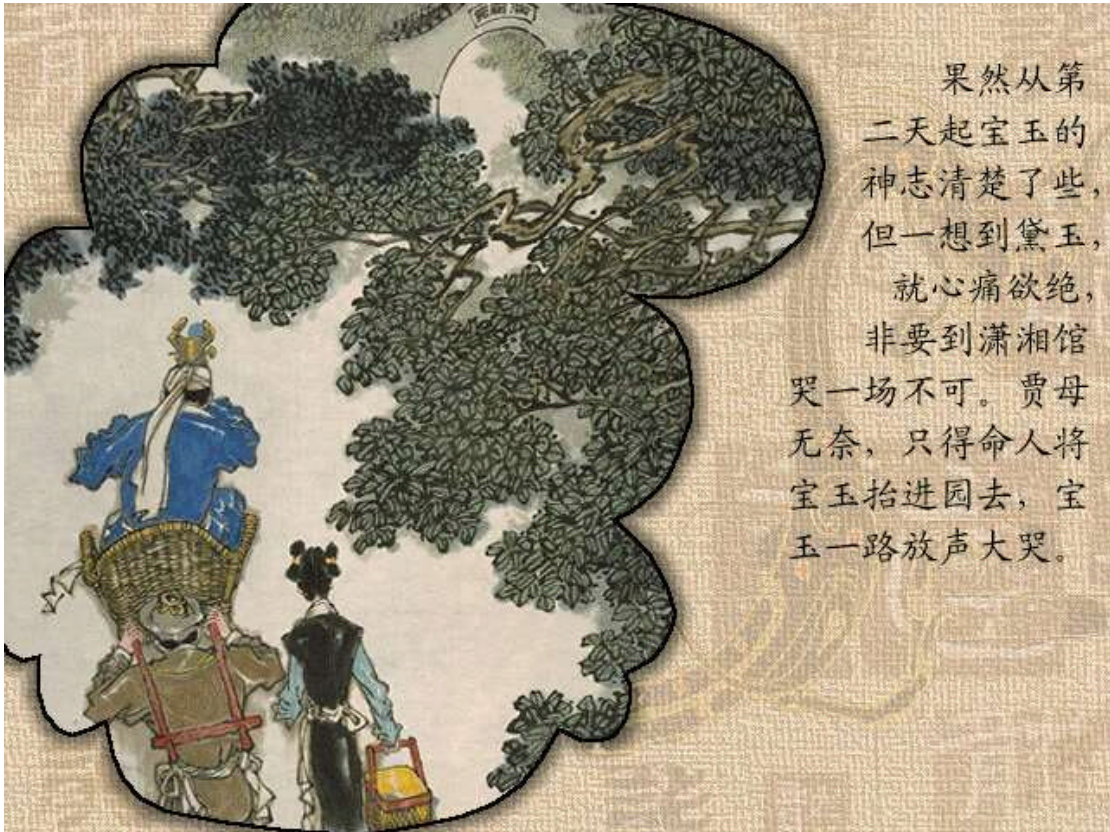 果然从第
二天起宝玉的
神志清楚了些，
但一想到黛玉，
就心痛欲绝，
非要到潇湘馆
哭一场不可。贾母
无奈，只得命人将
宝玉抬进园去，宝
玉一路放声大哭。